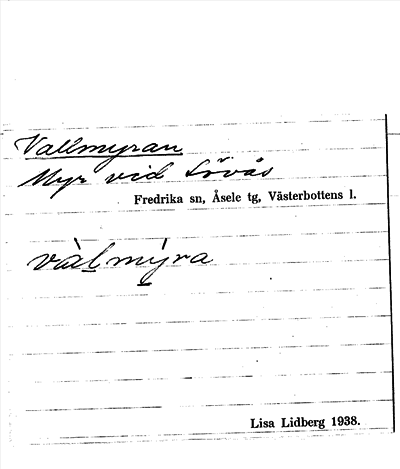 Vallmyran
Myr vid Lövås
Fredrika sn, Åsele tg, Västerbottens l.
vàlmýra
Lisa Lidberg 1938.